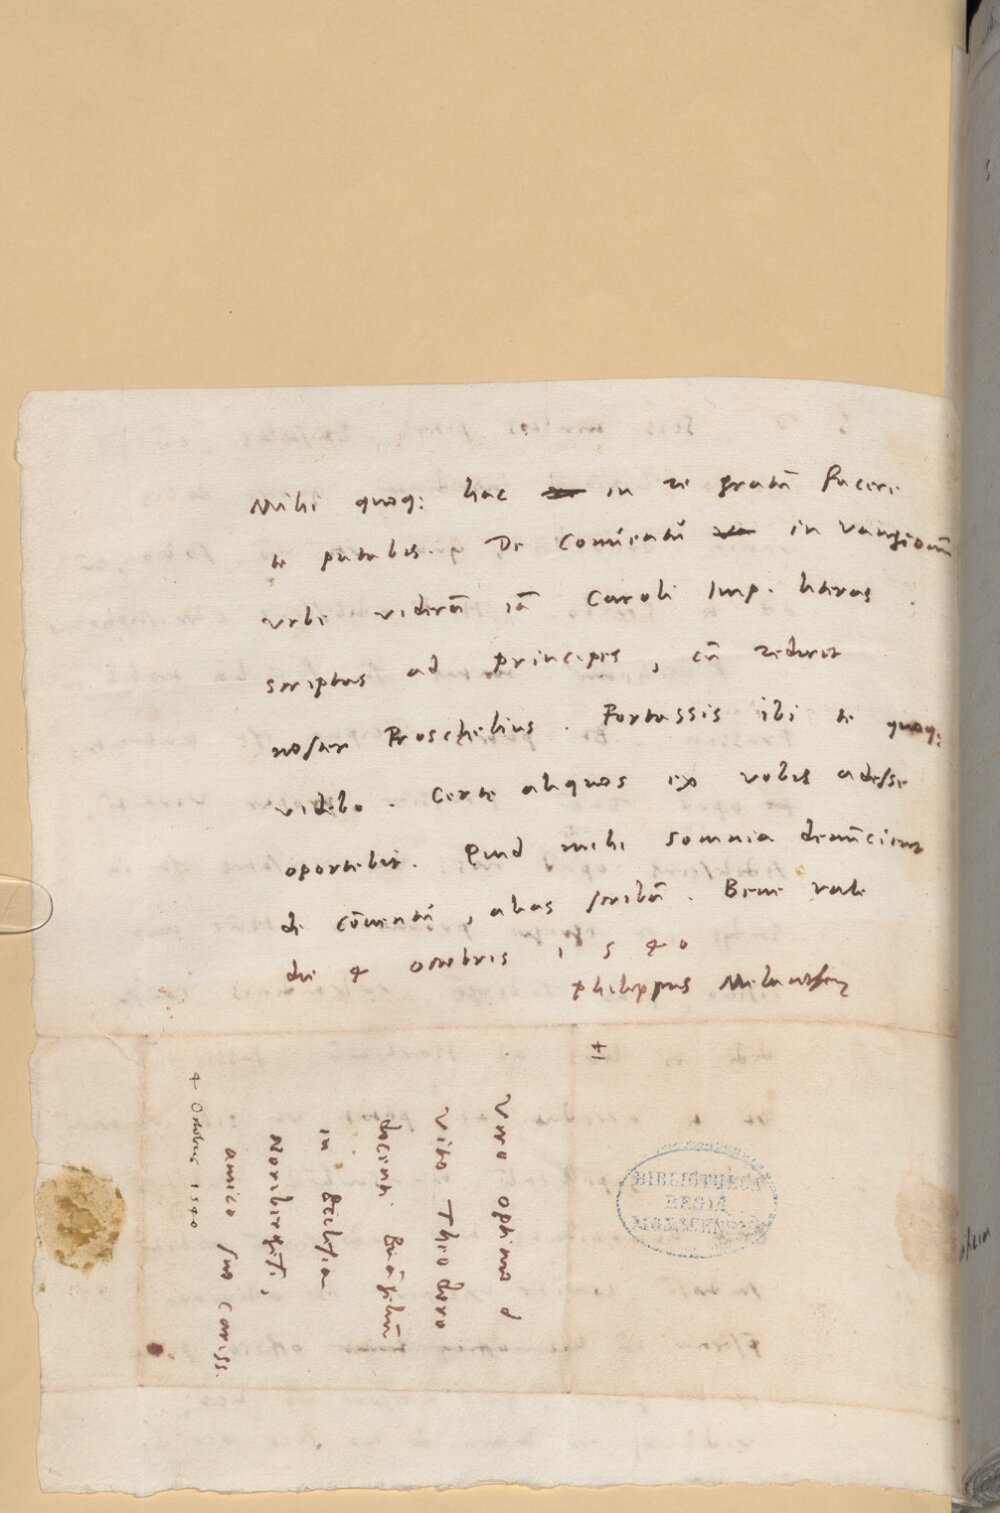 Mihi quoq: hac in re gratū facere
te putabis. De Conuentu in Vangionū
vrbe viderā iā Caroli Imp. literas
scriptas ad principes, cū rediret
noster Froschelius. Fortassis ibi te quoq:
videbo. Certe aliquos ex vobis adesse
oportebit. Quid mihi somnia denūcient
de cōuentu, alias scribā. Bene vale
die 4 octobris 1540
Philippus Melanthon
Viro optimo d
Vito Theodoro
docenti Euāgeliū
in Ecclesia
Noribergēsi,
amico suo cariss.
4 Octobris 1540
BIBLIOTHECA
REGIA
MONACENSIS